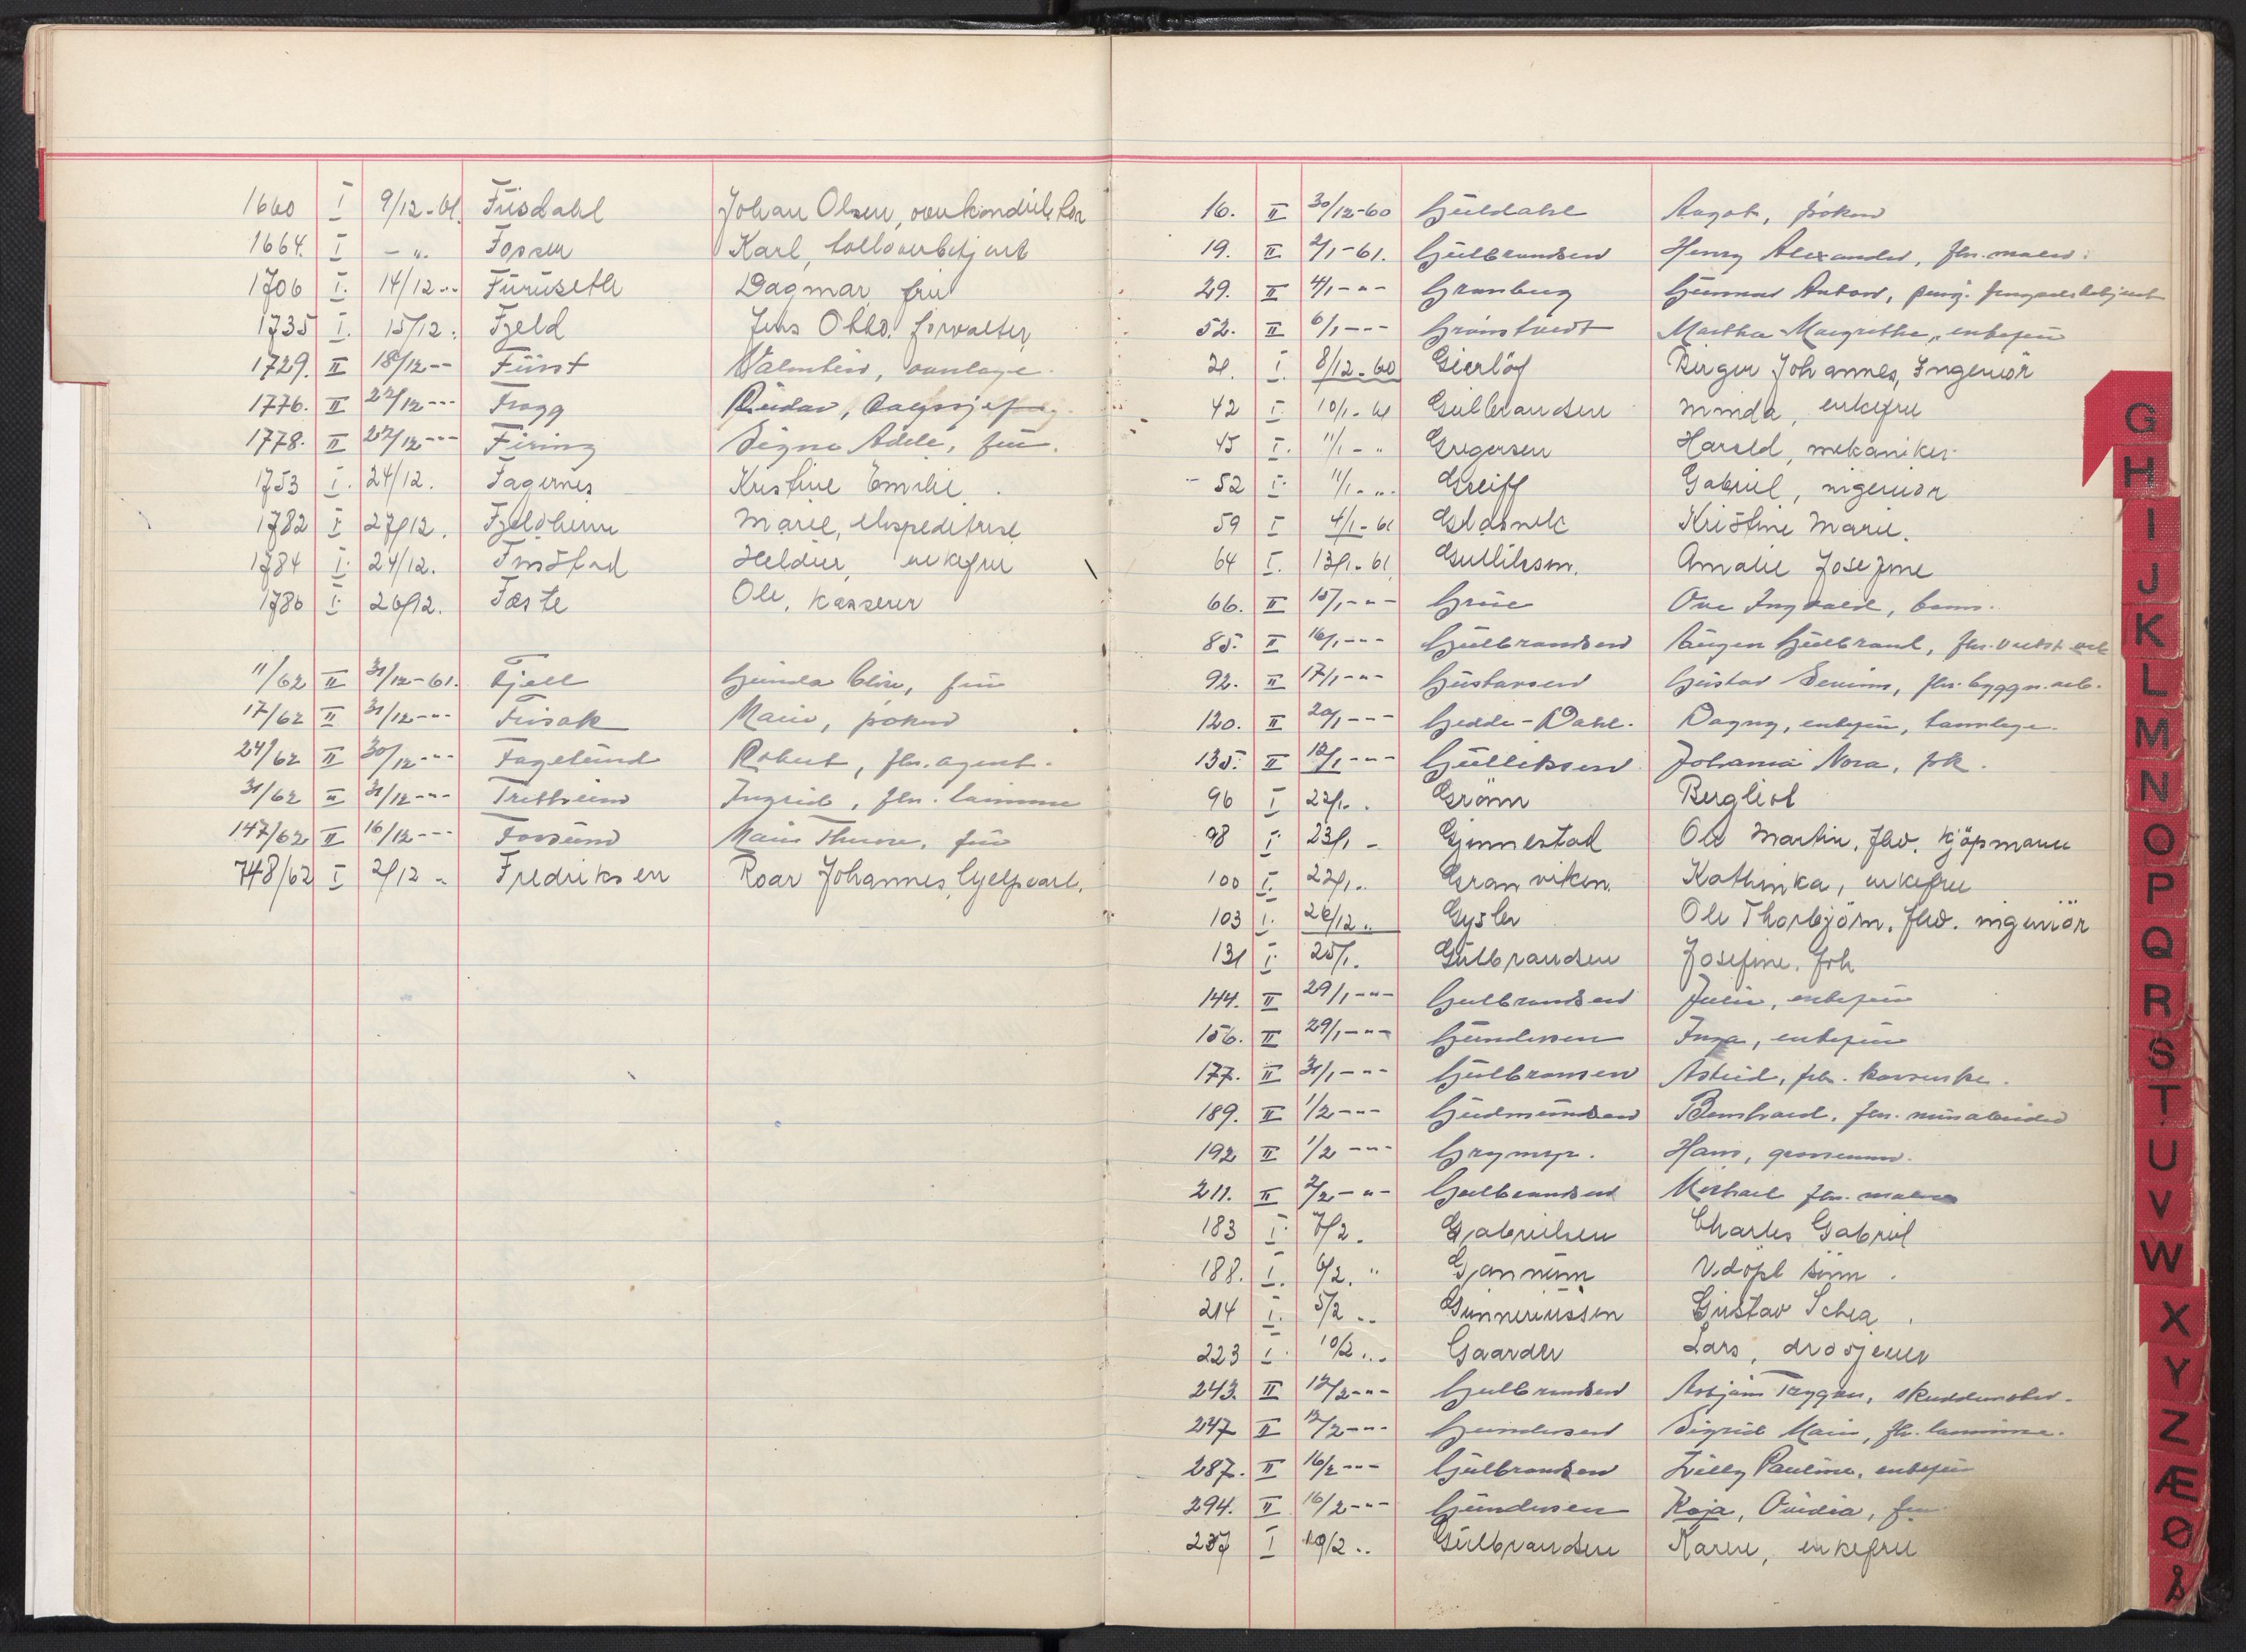 1660 I 9/12-61. Fusdahl Johan Olsen, overkonduktør
1664. I - „. Fossen Karl, tolloverbetjent
1706 I. 14/12 .. Furuseth Dagmar, fru
1735 I. 15/12. Fjeld Jens Otto. forvalter
1729. II 18/12 -- Fürst Valentin, vanlage.
1776. II 22/12 --- Frogg Reidar, salgssjef
1778. II 22/12 --- Firing Signe Adele, fru.
1753 I. 24/12. Fagernes Kristine Emilie.
1782 I. 27/12. Fjeldheim Marie, ekspeditrise
1784 I. 24/12. enkefru
1786 I. 26/12. Fæste Ole, kasserer
11/62 II 31/12-61. Fjell Gunda Eline, fru
17/62 II 31/12 -"- Fusak Marie, frøken
24/62 II 30/12 -"- Fagelund Robert, fhv. agent.
31/62 II 31/12 -"- Fretheim Ingrid, fhv. lærerinne
147/62 II 16/12 --- Fossund fru
748/62 I 2/12 „ Fredriksen Roar Johannes, hjelpearb.
16. II 30/12-60 Guldahl Aagot, frøken
19. II 2/1-61. Gulbrandsen Henry Alexander, fhv. maler.
29. II 4/1 -"- Granberg Gunnar Anton, pens. fengselsbetjent
52. II 6/1 --- Grønstvedt Martha Margrethe, enkefru
21. I. 8/12-60 Gierløf Birger Johannes, Ingeniør
42 I. 10/1-61 Gulbrandsen Minda, enkefru
45 I. 11/1 - „ Gregersen Harald, mekaniker
52 I. 11/1 - „. Greiff Gabriel, ingeniør
59 I 4/1-61 Kristine Marie.
64 I. 13/1-61 Gulliksen. Amalie Josefine
66. II 15/1 -"- Grüe Ove Ingvald,
85. II 16/1 -"- Gulbrandsen Gulbrand, fhv. verkst. arb
92. II 17/1 -"- Gustavsen Gustav Severin, fhv. byggn. arb.
120. II 20/1 --- Gedde-Dahl. Dagny, enkefru, tannlege.
135. II 12/1 --- Gulliksen Johanna Nora, frk.
96 I 22/1. Grønn Bergliot
98 I. 23/1 - Gjennestad Ole Martin, fhv. kjøpmann
100 I. 22/1. Granviken. Kathinka, enkefru
103 I. 26/12 „ Gysler Ole Thorbjørn. fhv. ingeniør
131 I. 25/1. Gulbrandsen Josefine. frk
144. II 29/1 -"- Gulbrandsen Julie, enkefru
156. II 29/1 -"- Gundersen Inga, enkefru
177. II 31/1 -"- Gulbransen Astrid, fhv.
189. II 1/2 -"- Gudmundsen Bernhard, fhv. murarbeider
192 II 1/2 -"- Grymyr. Hans, grosserer.
211. II 2/2 -"- Gulbrandsen Michael fhv. maler
183 I. 7/2. Gabrielsen Charles Gabriel
188. I. 6/2. " Udøpt sønn.
214 I. 5/2 .. Gunneriussen Gustav Schea.
223 I. 10/2 ... Gaarder Lars, drosjeeier
243. II 12/2 -"- Gulbrandsen Asbjørn Trygve,
247 II 12/2 -"- Gundersen Sigrid Marie, fhv. lærerinne.
287. II 16/2 -"- Gulbrandsen Lilly Pauline, enkefru
294. II 16/2 -"- Gundersen Kaja, Ovidia, fru
237 I 19/2 .. Gulbrandsen Karen, enkefru
G
H
I
J
K
L
M
N
O
P
Q
R
S
T
U
V
W
X
Y
Z
Æ
Ø
Å